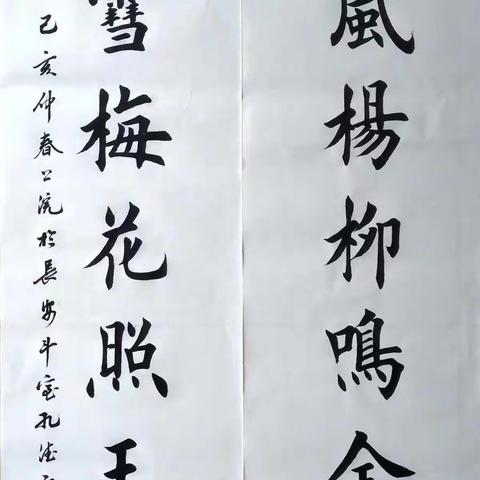 風楊柳鳴金
雪梅花照
己亥仲春上浣於長安斗室孔德